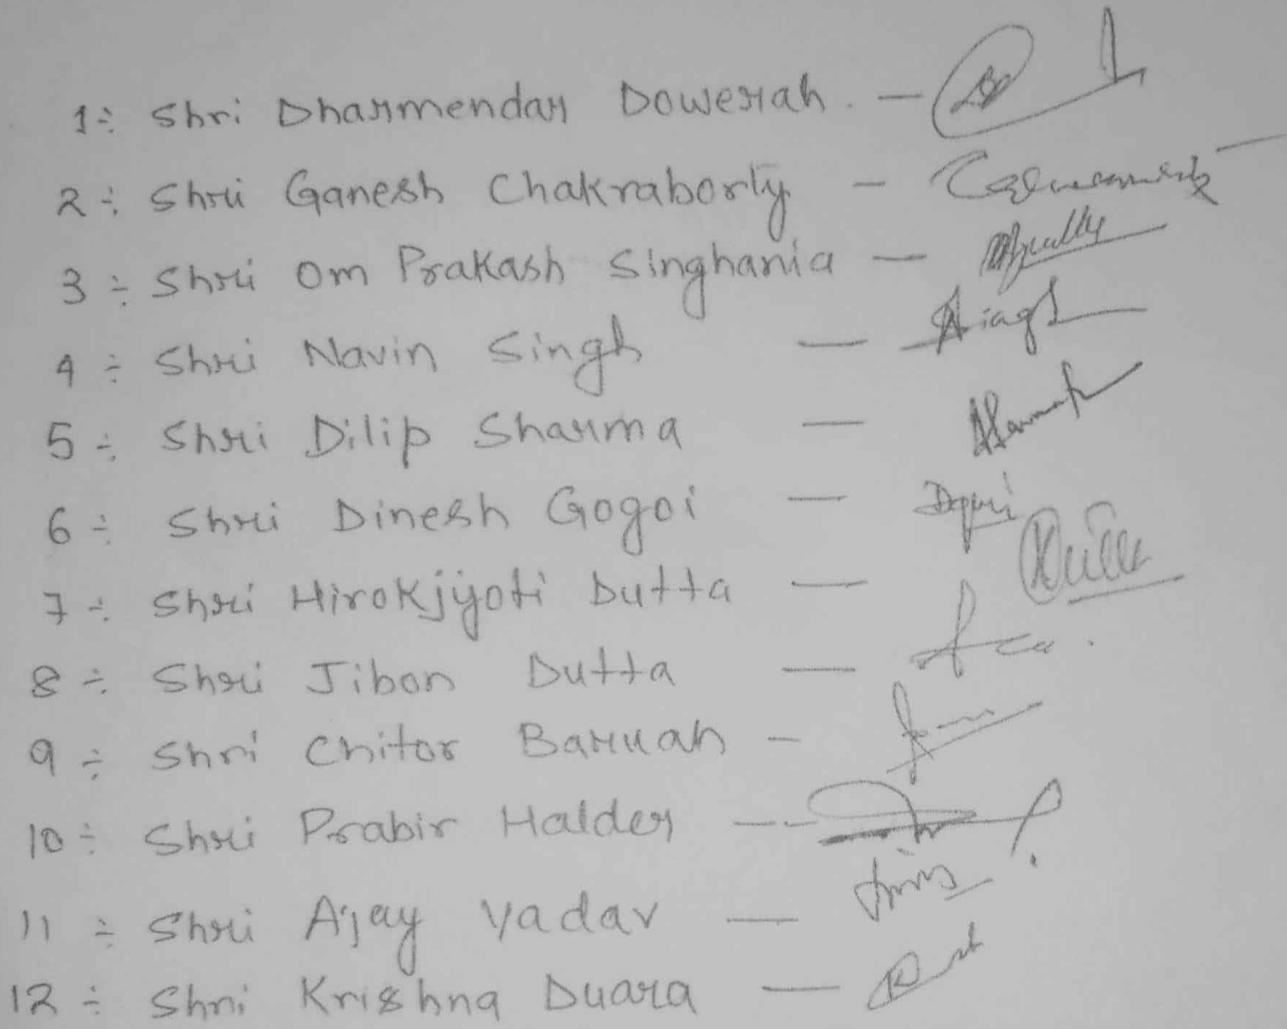 1÷ Shri Dharmendar Dowerah. -
2÷ Shri Ganesh Chakraborty -
3÷ Shri Om Prakash Singhania -
4÷ Shri Navin Singh -
5÷ Shri Dilip Sharma -
6÷ Shri Dinesh Gogoi -
7÷ Shri Hirokjyoti Dutta -
8÷ Shri Jibon Dutta -
9÷ Shri Chitor Baruah -
10÷ Shri Prabir Halder -
11÷ Shri Ajay Yadav -
12÷ Shri Krishna Duara -